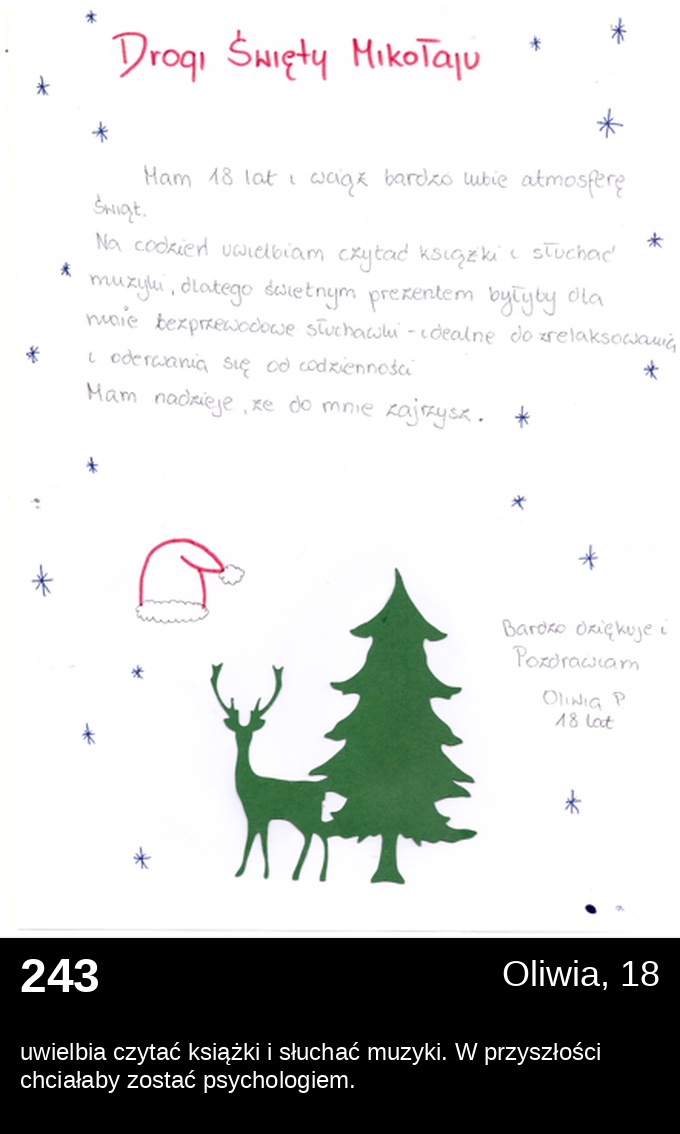 Drogi Święty Mikołaju
Mam 18 lat i wciąż bardzo lubie atmosferę
Świąt.
Na codzień uwielbiam czytać książki i słuchać
muzyki, dlatego świetnym prezentem byłyby dla
mnie bezprzewodowe słuchawki - idealne do zrelaksowania
i oderwania się od codzienności
Mam nadzieje, że do mnie zajrzysz.
Bardzo dziękuje i
Pozdrawiam
Oliwia P.
18 lat
243
Oliwia, 18
uwielbia czytać książki i słuchać muzyki. W przyszłości
chciałaby zostać psychologiem.